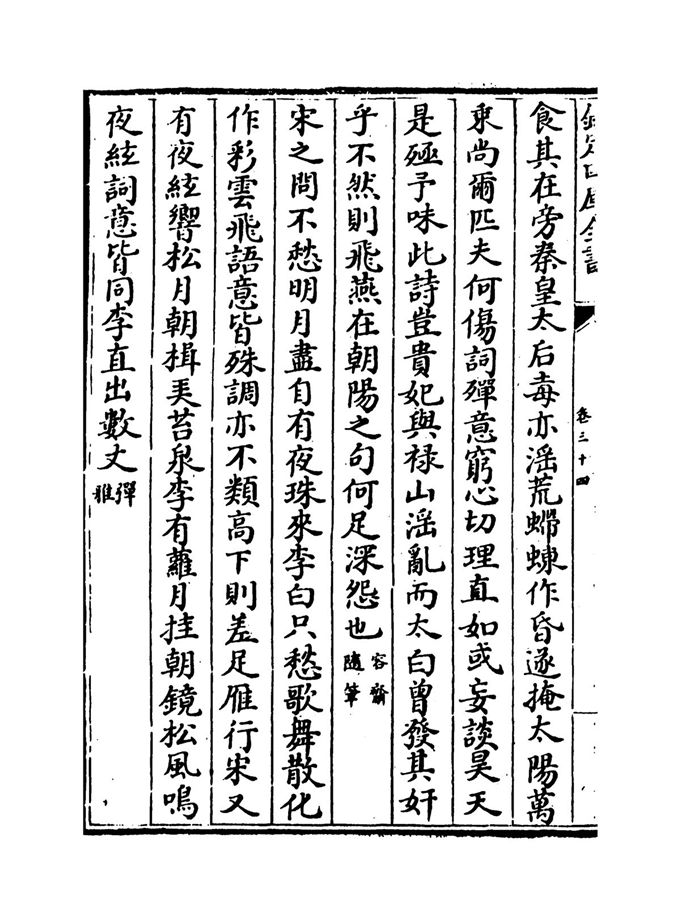 欽定四庫全書
卷三十四
食其在旁秦皇太后毒亦滛荒螮蝀作昏遂掩太陽萬
乘尚爾匹夫何傷詞殫意窮心切理直如或妄談昊天
是殛予味此詩豈貴妃與祿山滛亂而太白曾發其奸
乎不然則飛燕在朝陽之句何足深怨也容齋隨筆
宋之問不愁明月盡自有夜珠來李白只愁歌舞散化
作彩雲飛語意皆殊調亦不類高下則差足雁行宋又
有夜絃響松月朝楫弄苔泉李有蘿月挂朝鏡松風鳴
夜絃詞意皆同李直出數丈彈雅